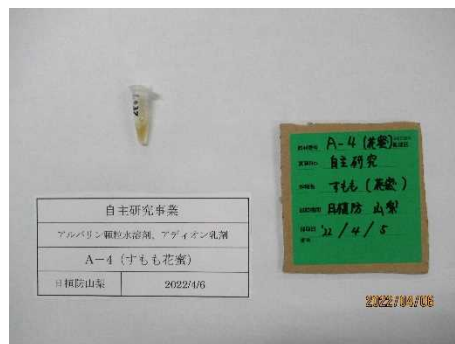 自主研究事業
アルバリン顆粒水溶剤、アディオン乳剤
A－4（すもも花蜜）
日植防山梨 2022/4/6
A-4 (花蜜)
自主研究
すもも (花蜜)
日植防 山梨
'22 / 4 / 5
2022/04/06